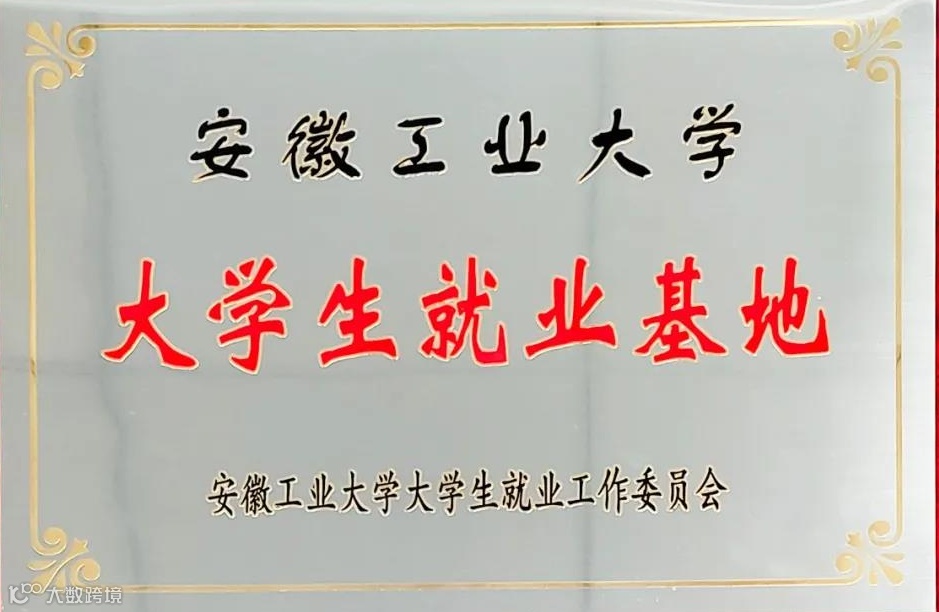 安徽工业大学
大学生就业基地
安徽工业大学大学生就业工作委员会
大数跨境